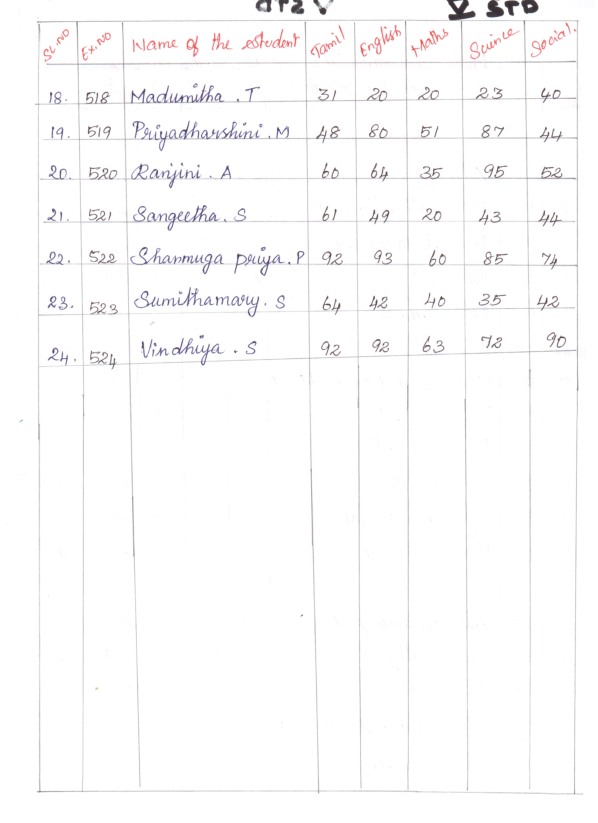 V STD
V STD
SL.NO Ex.NO Name of the student Tamil English Maths Science Social.
18. 518 Madumitha . T 31 20 20 23 40
19. 519 Priyadharshini . M 48 80 51 87 44
20. 520 Ranjini . A 60 64 35 95 52
21. 521 Sangeetha . S 61 49 20 43 44
22. 522 Shanmuga priya . P 92 93 60 85 74
23. 523 Sumithamary . S 64 42 40 35 42
24. 524 Vindhiya . S 92 92 63 72 90